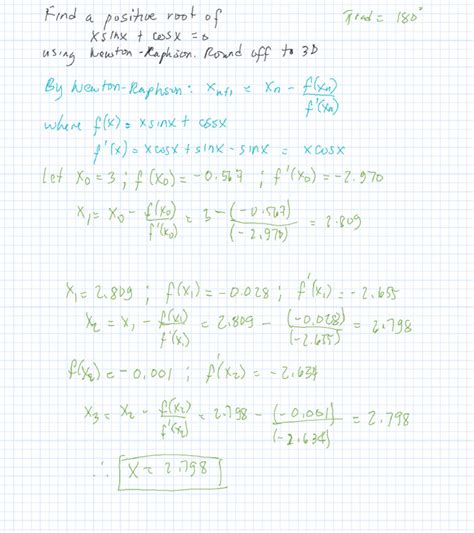 Find a positive root of
π rad = 180°
x sinx + cosx = 0
using Newton-Raphson. Round off to 3D
By Newton-Raphson: xₙ₊₁ = xₙ - f(xₙ)/f'(xₙ)
where f(x) = x sinx + cosx
f'(x) = x cosx + sinx - sinx = x cosx
Let x₀ = 3 ; f(x₀) = -0.567 ; f'(x₀) = -2.970
x₁ = x₀ - f(x₀)/f'(x₀) = 3 - (-0.567)/(-2.970) = 2.809
x₁ = 2.809 ; f(x₁) = -0.028 ; f'(x₁) = -2.655
x₂ = x₁ - f(x₁)/f'(x₁) = 2.809 - (-0.028)/(-2.655) = 2.798
f(x₂) = -0.001 ; f'(x₂) = -2.634
x₃ = x₂ - f(x₂)/f'(x₂) = 2.798 - (-0.001)/(-2.634) = 2.798
∴ x = 2.798